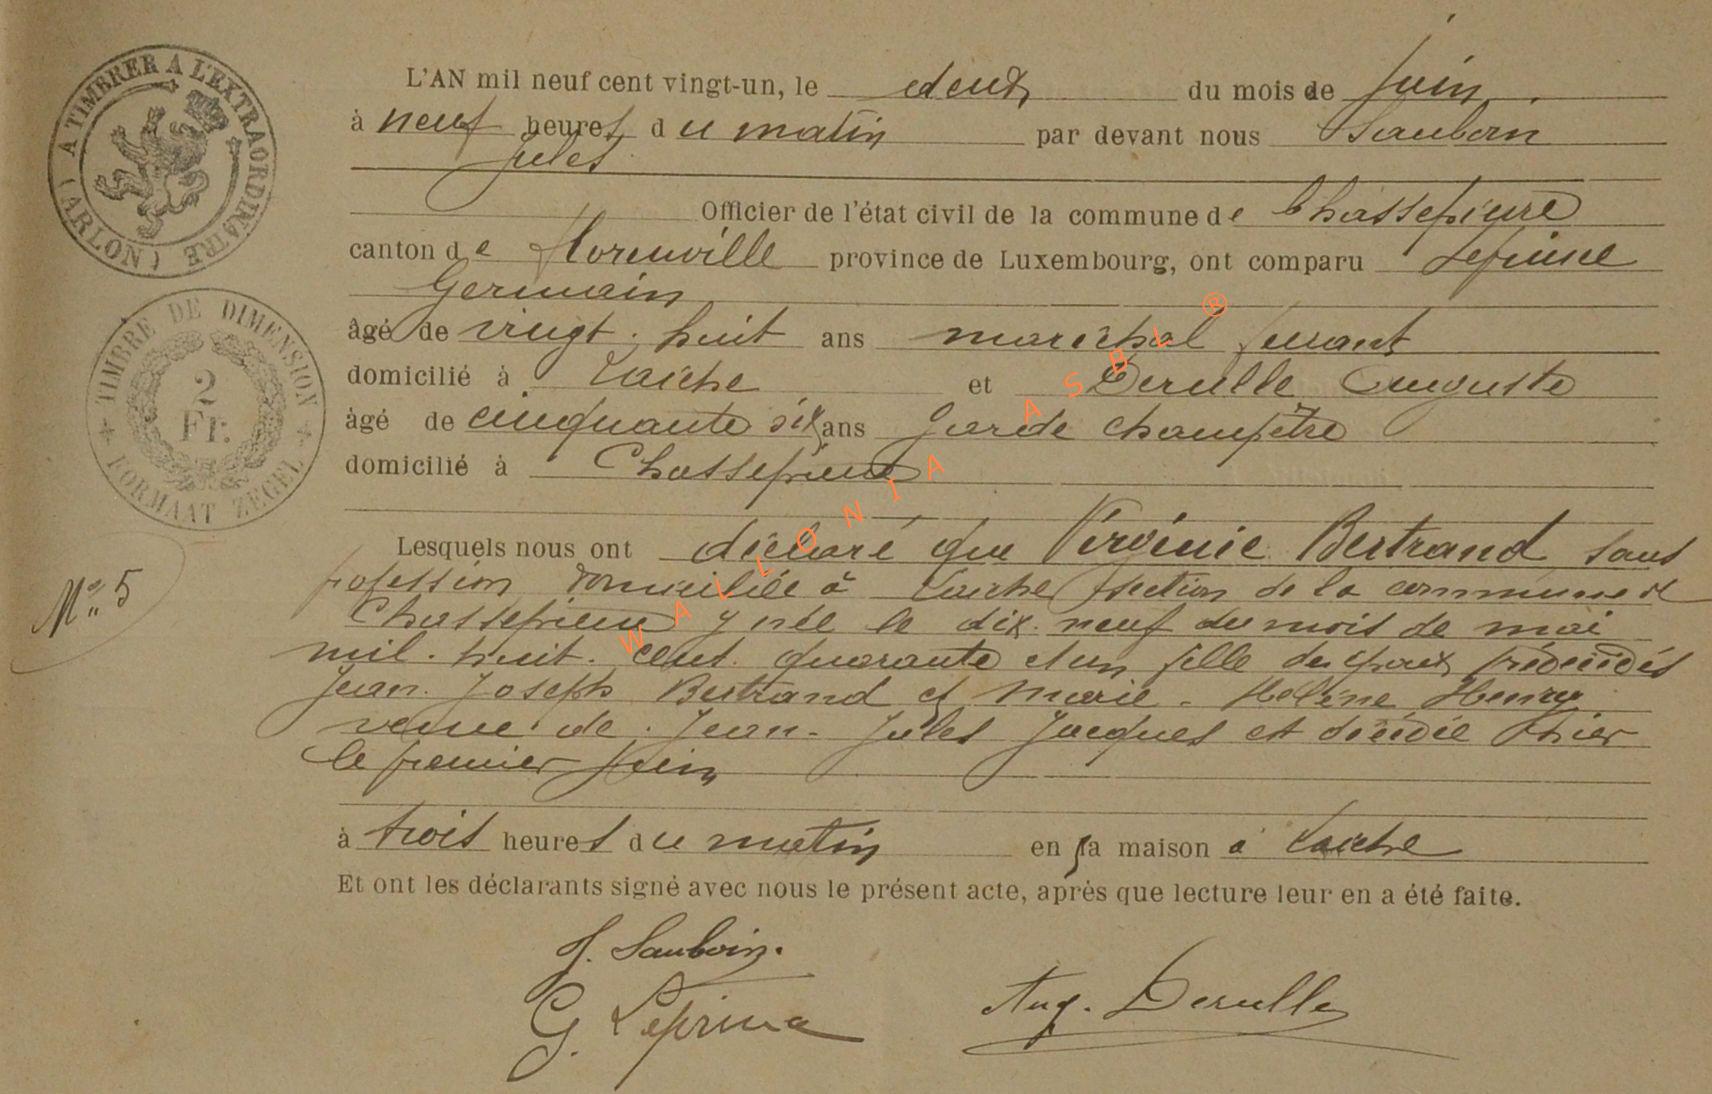 L'AN mil neuf cent vingt-un, le deux du mois de Juin
à neuf heures du matin par devant nous Sauboin
Jules
Officier de l'état civil de la commune de Chassepierre
canton de Florenville province de Luxembourg, ont comparu Lepinne
Germain
âgé de vingt-huit ans maréchal ferrant
domicilié à Laiche et Derulle Auguste
âgé de cinquante six ans Garde champêtre
domicilié à Chassepierre
Lesquels nous ont déclaré que Virginie Bertrand sans
profession domiciliée à Laiche section de la commune de
Chassepierre y née le dix-neuf du mois de mai
mil-huit-cent quarante et un fille des époux prédécédés
Jean-Joseph Bertrand et Marie-Hélène Henry
veuve de Jean-Jules Jacques est décédée hier
le premier Juin
à trois heures du matin en sa maison à Laiche
Et ont les déclarants signé avec nous le présent acte, après que lecture leur en a été faite.
J. Sauboin.
G. Lepinne Aug. Derulle
N° 5
(A TIMBRER A L'EXTRAORDINAIRE (ARLON)
TIMBRE DE DIMENSION
2
Fr.
FORMAAT ZEGEL
WALLONIA ASBL ®